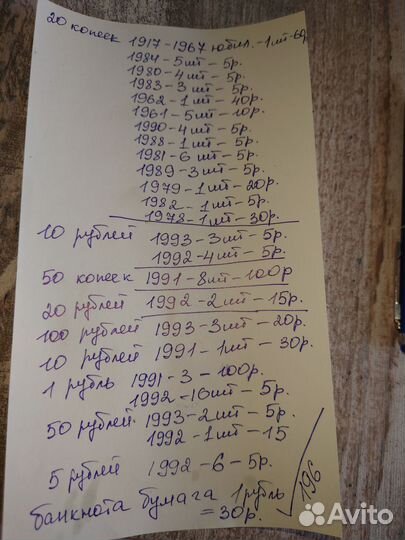 20 копеек 1917-1967 юбил. - 1шт-60р.
1984 - 5шт - 5р.
1980 - 4шт - 5р.
1983 - 3шт - 5р.
1962 - 1шт - 40р.
1961 - 5шт - 10р.
1990 - 4шт - 5р.
1988 - 1шт - 5р.
1981 - 6шт - 5р.
1989 - 3шт - 5р.
1979 - 1шт - 20р.
1982 - 1шт - 5р.
1978 - 1шт - 30р.
10 рублей 1993 - 3шт - 5р.
1992 - 4шт - 5р.
50 копеек 1991 - 8шт - 100р
20 рублей 1992 - 2шт - 15р.
100 рублей 1993 - 3шт - 20р.
10 рублей 1991 - 1шт - 30р.
1 рубль 1991 - 3 - 100р.
1992 - 16шт - 5р.
50 рублей 1993 - 2шт - 5р.
1992 - 1шт - 15
5 рублей 1992 - 6 - 5р.
банкнота бумага 1 рубль
= 30р.
196
Avito